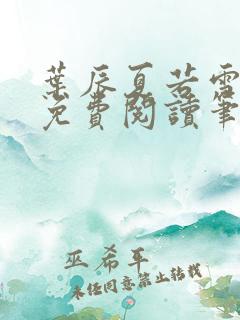 葉辰夏若雪
免費閱讀筆
巫希平
未经同意禁止转载